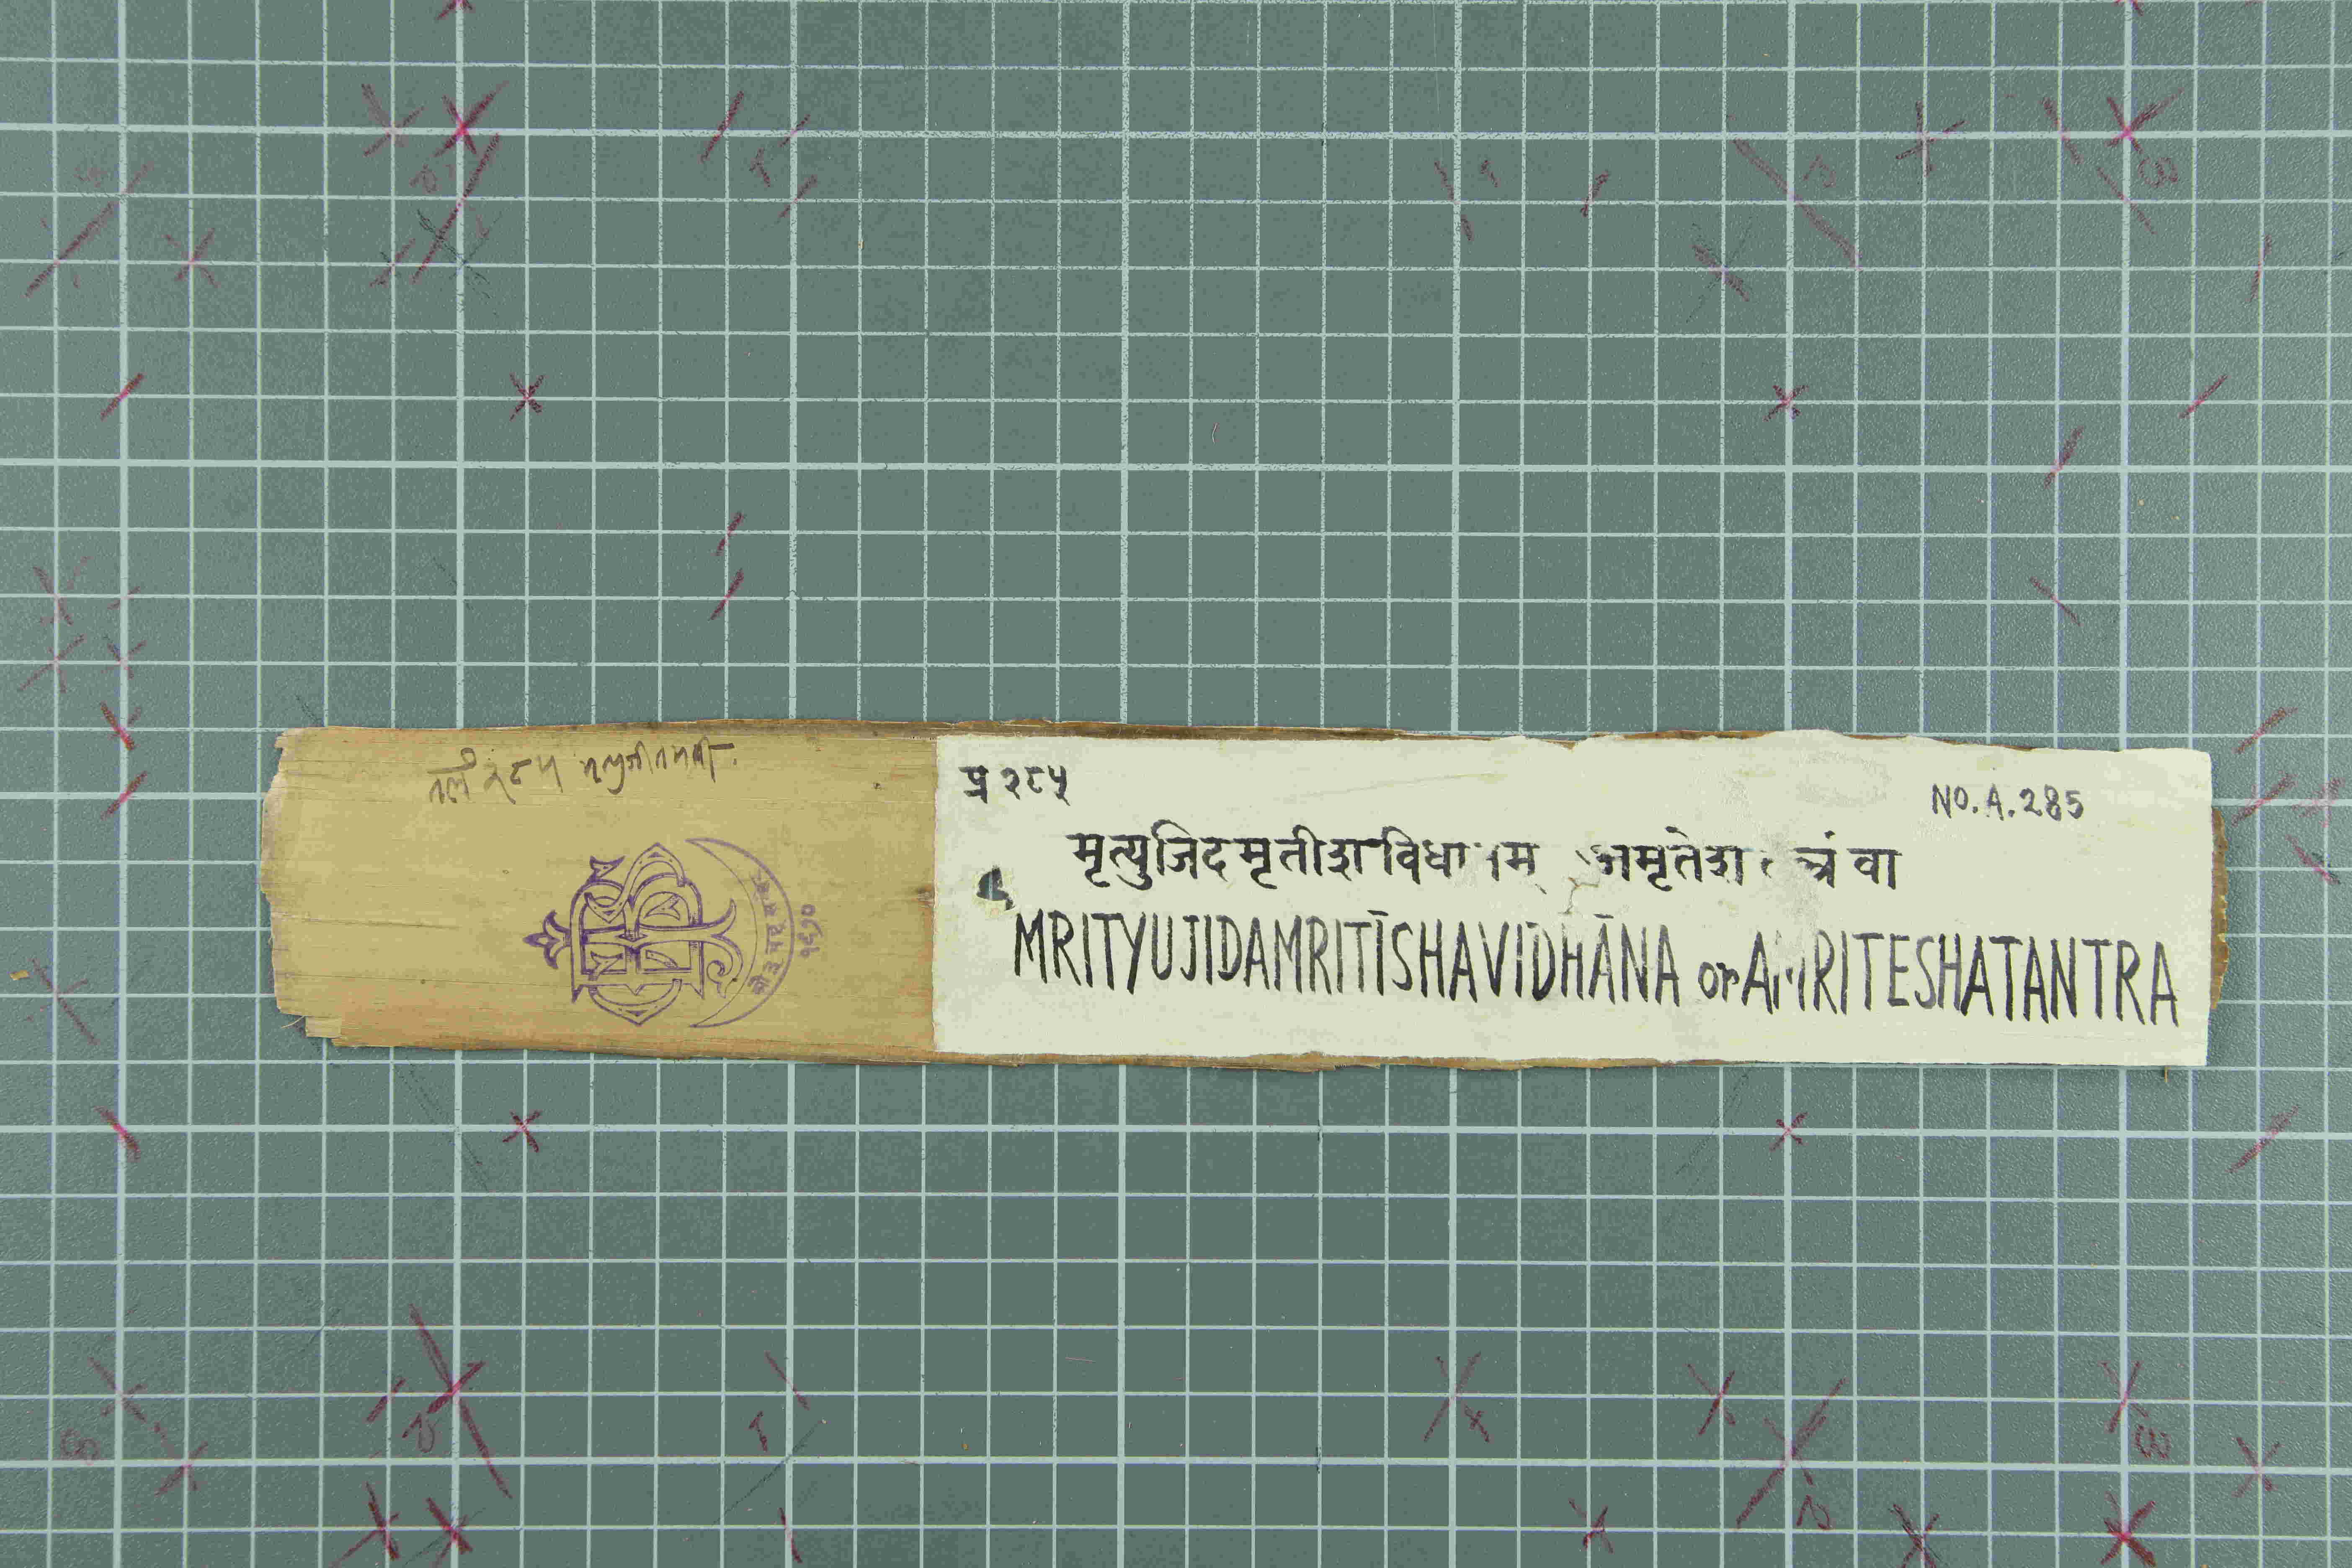 २८५
प्र २८५
NO. A. 285
मृत्युजिदमृतीशविधानम् अमृतेश वा
MRITYUJIDAMRITĪSHAVIDHĀNA or AMRITESHATANTRA